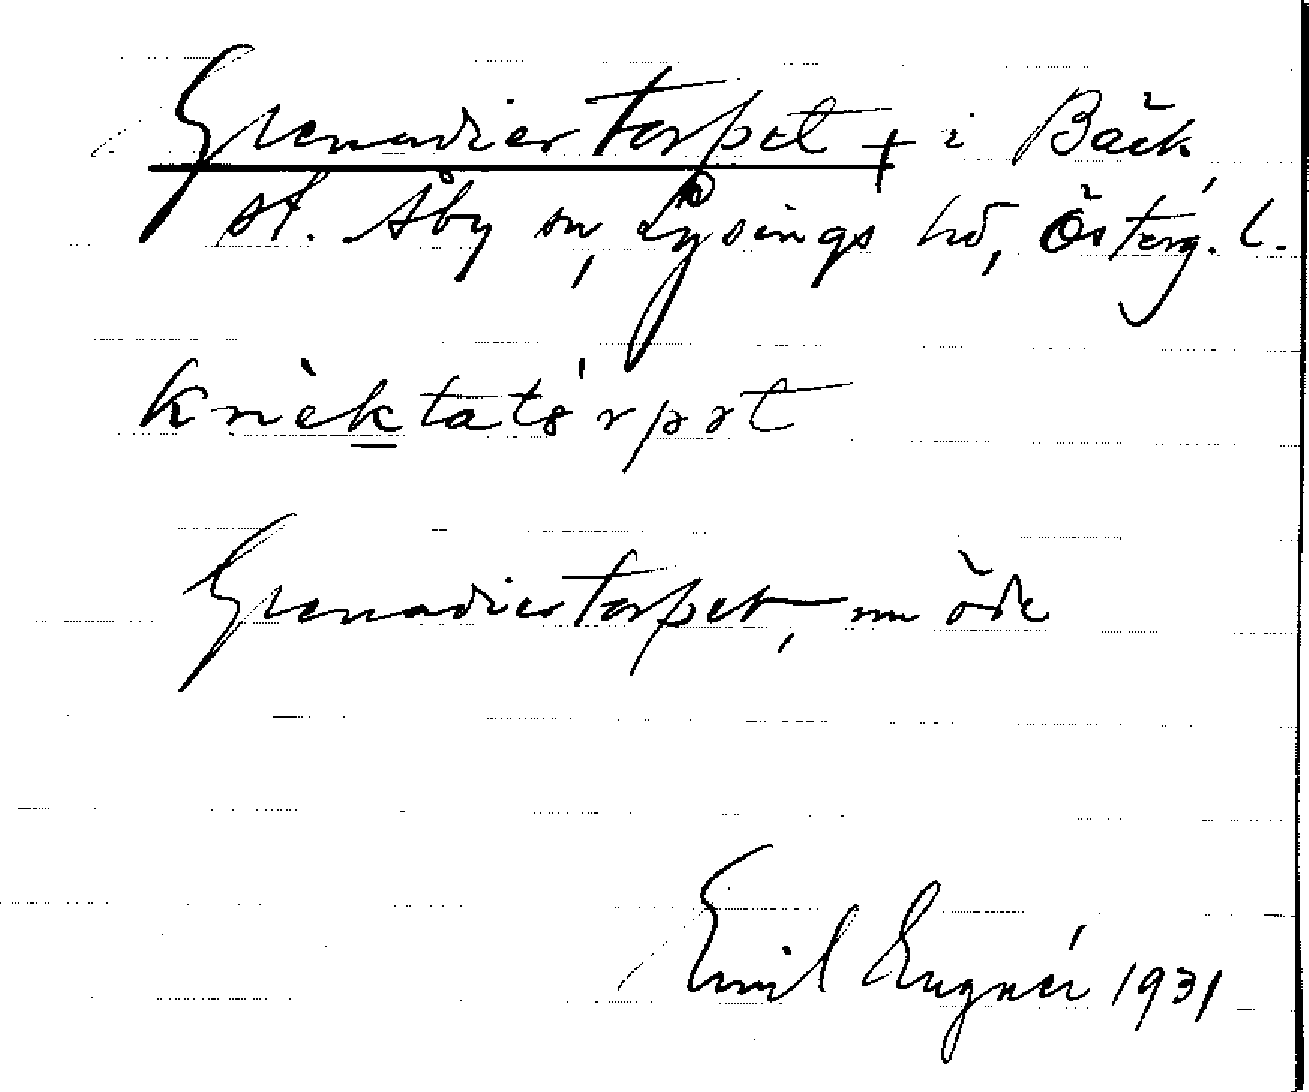 Grenadiertorpet + i Bäck,
st. Åby sn, Lysings hd, Österg. l.
Grenadiertorpet, nu öde
Emil Engnér 1931